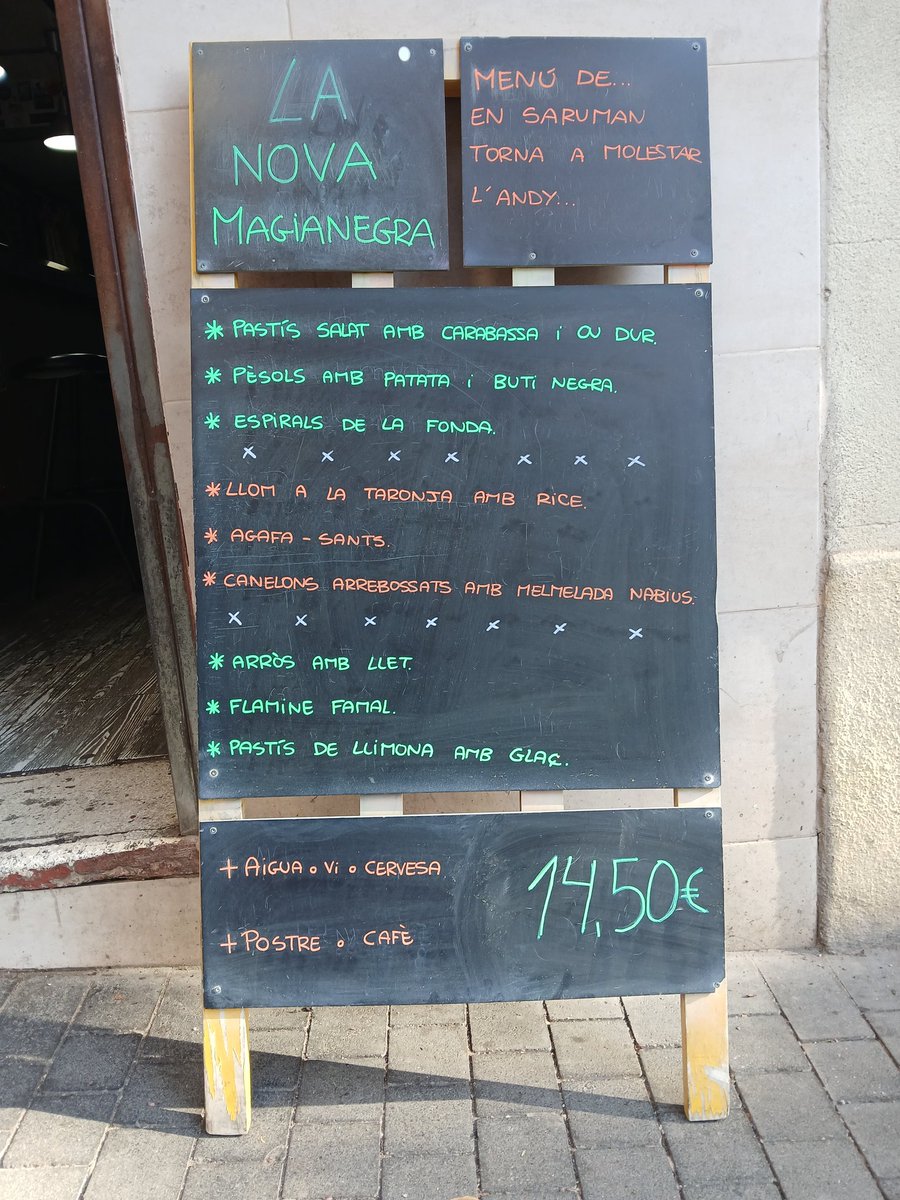 LA
NOVA
MAGIANEGRA
MENÚ DE...
EN SARUMAN
TORNA A MOLESTAR
L'ANDY...
* PASTÍS SALAT AMB CARABASSA I OU DUR.
* PÈSOLS AMB PATATA I BUTI NEGRA.
* ESPIRALS DE LA FONDA.
x x x x x x x
* LLOM A LA TARONJA AMB RICE.
* AGAFA - SANTS.
* CANELONS ARREBOSSATS AMB MELMELADA NABIUS.
x x x x x x x
* ARRÒS AMB LLET.
* FLAMINE FAMAL.
* PASTÍS DE LLIMONA AMB GLAÇ.
+ AIGUA o VI o CERVESA
+ POSTRE o CAFÈ
14,50€